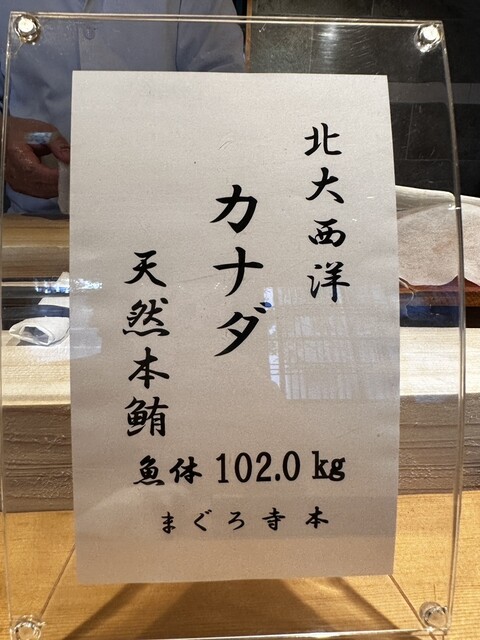 北大西洋
カナダ
天然本鮪
魚体 102.0 kg
まぐろ寺本